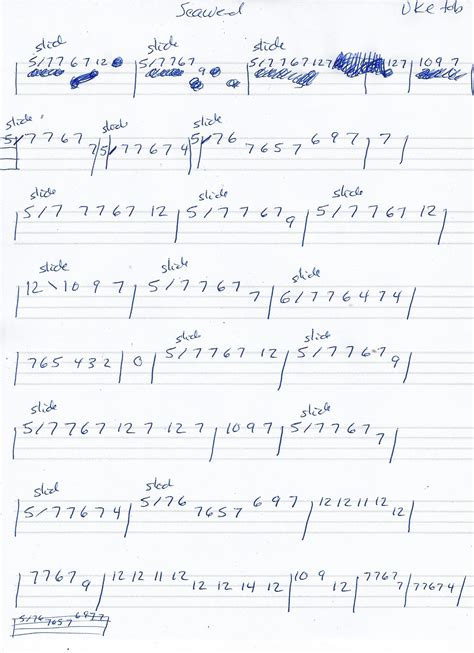 Seaweed Uke tab
slide slide slide
5/7767 12 | 5/7767 9 | 5/7767 127 127 | 1097 |
slide slide slide
5/7767 7 | 5/77674 | 5/76 7657 697 | 7 |
slide slide slide
| 5/7 7767 12 | 5/7767 9 | 5/7767 12 |
slide slide slide
| 12\10 9 7 | 5/7767 7 | 6/776474 |
slide slide
| 765 432 | 0 | 5/7767 12 | 5/7767 9 |
slide slide
| 5/7767 127 127 | 1097 | 5/7767 7 |
slid slid
| 5/77674 | 5/76 7657 697 | 12 12 11 12 12 |
| 7767 9 | 12 12 11 12 12 12 14 12 | 10 9 12 | 7767 7 | 77674 |
5/76 7657 6977